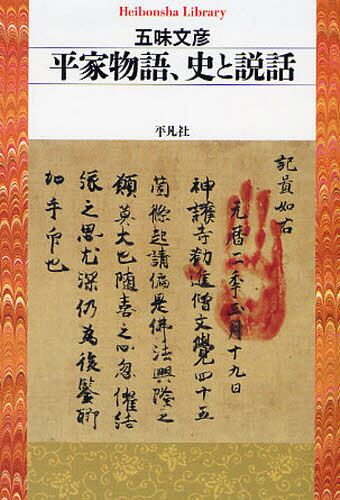 Heibonsha Library
五味文彦
平家物語、史と説話
平凡社
記異如右
元暦二年正月十九日
神護寺勧進僧文覺四十五
箇條起請偏是佛法興隆之
願莫大也随喜之心忽催結
縁之思尤深仍為後鑒聊
加手印也